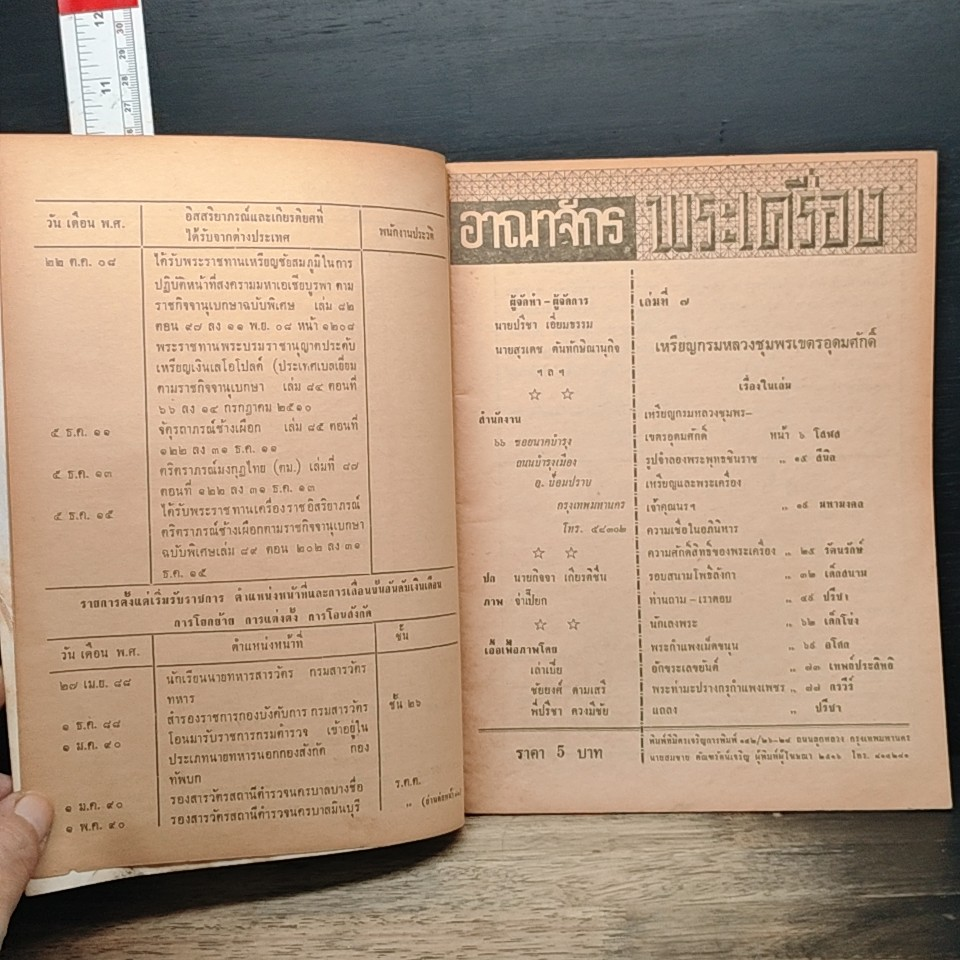 12
11
30
29
28
27
วัน เดือน พ.ศ.
อิสสริยาภรณ์และเกียรติยศที่
ได้รับจากต่างประเทศ
พนักงานประวัติ
๒๒ ต.ค. ๐๘
ได้รับพระราชทานเหรียญชัยสมภูมิในการ
ปฏิบัติหน้าที่สงครามมหาเอเซียบูรพา ตาม
ราชกิจจานุเบกษาฉบับพิเศษ เล่ม ๘๒
ตอน ๙๗ ลง ๑๑ พ.ย. ๐๘ หน้า ๑๒๐๘
พระราชทานพระบรมราชานุญาตประดับ
เหรียญเงินเลโอโปลด์ (ประเทศเบลเยี่ยม
ตามราชกิจจานุเบกษา เล่ม ๘๔ ตอนที่
๖๖ ลง ๑๔ กรกฎาคม ๒๕๑๐
๕ ธ.ค. ๑๑
จัตุรถาภรณ์ช้างเผือก เล่ม ๘๕ ตอนที่
๑๒๒ ลง ๓๑ ธ.ค. ๑๑
๕ ธ.ค. ๑๓
ตริตราภรณ์มงกุฎไทย (ตม.) เล่มที่ ๘๗
ตอนที่ ๑๒๒ ลง ๓๑ ธ.ค. ๑๓
๕ ธ.ค. ๑๕
ได้รับพระราชทานเครื่องราชอิสริยาภรณ์
ตริตราภรณ์ช้างเผือกตามราชกิจจานุเบกษา
ฉบับพิเศษเล่ม ๘๙ ตอน ๒๐๒ ลง ๓๑
ธ.ค. ๑๕
รายการตั้งแต่เริ่มรับราชการ ตำแหน่งหน้าที่และการเลื่อนชั้นอันดับเงินเดือน
การโยกย้าย การแต่งตั้ง การโอนสังกัด
วัน เดือน พ.ศ.
ตำแหน่งหน้าที่
ชั้น
๒๗ เม.ย. ๘๘
นักเรียนนายทหารสารวัตร์ กรมสารวัตร
ทหาร
๑ ธ.ค. ๘๘
สำรองราชการกองบังคับการ กรมสารวัตร
ชั้น ๒๖
๑ ม.ค. ๙๐
โอนมารับราชการกรมตำรวจ เข้าอยู่ใน
ประเภทนายทหารนอกกองสังกัด กอง
ทัพบก
๑ ม.ค. ๙๐
รองสารวัตรสถานีตำรวจนครบาลบางซื่อ
ร.ต.ต.
๑ พ.ค. ๙๐
รองสารวัตรสถานีตำรวจนครบาลมีนบุรี
„
อาณาจักร พระเครื่อง
ผู้จัดทำ – ผู้จัดการ
นายปรีชา เอี่ยมธรรม
นายสุรเดช ตันทักษิณานุกิจ
ฯ ล ฯ
☆ ☆
สำนักงาน
๖๖ ซอยนาคบำรุง
ถนนบำรุงเมือง
อ. ป้อมปราบ
กรุงเทพมหานคร
โทร. ๕๔๓๐๒
☆ ☆
ปก นายกิจจา เกียรติชื่น
ภาพ จ่าเปี๊ยก
☆ ☆
เอื้อเฟื้อภาพโดย
เล่าเบี้ย
ชัยยงค์ ตามเสรี
พี่ปรีชา ดวงมีชัย
ราคา 5 บาท
เล่มที่ ๗
เหรียญกรมหลวงชุมพรเขตรอุดมศักดิ์
เรื่องในเล่ม
เหรียญกรมหลวงชุมพร–
เขตรอุดมศักดิ์ หน้า ๖ โสฬส
รูปจำลองพระพุทธชินราช „ ๑๕ สีนิล
เหรียญและพระเครื่อง
เจ้าคุณนรฯ „ ๑๙ มหามงคล
ความเชื่อในอภินิหาร
ความศักดิ์สิทธิ์ของพระเครื่อง „ ๒๕ รัตนรักษ์
รอบสนามโพธิ์ลังกา „ ๓๒ เด็กสนาม
ท่านถาม – เราตอบ „ ๔๙ ปรีชา
นักเลงพระ „ ๖๒ เด็กโข่ง
พระกำแพงเม็ดขนุน „ ๖๙ อโศก
อักขระเลขยันต์ „ ๗๓ เทพย์ประสิทธิ
พระท่ามะปรางกรุกำแพงเพชร „ ๗๗ กรวีร์
แถลง „ ปรีชา
พิมพ์ที่มิตรเจริญการพิมพ์ ๑๔๒/๒๖–๒๘ ถนนลูกหลวง กรุงเทพมหานคร